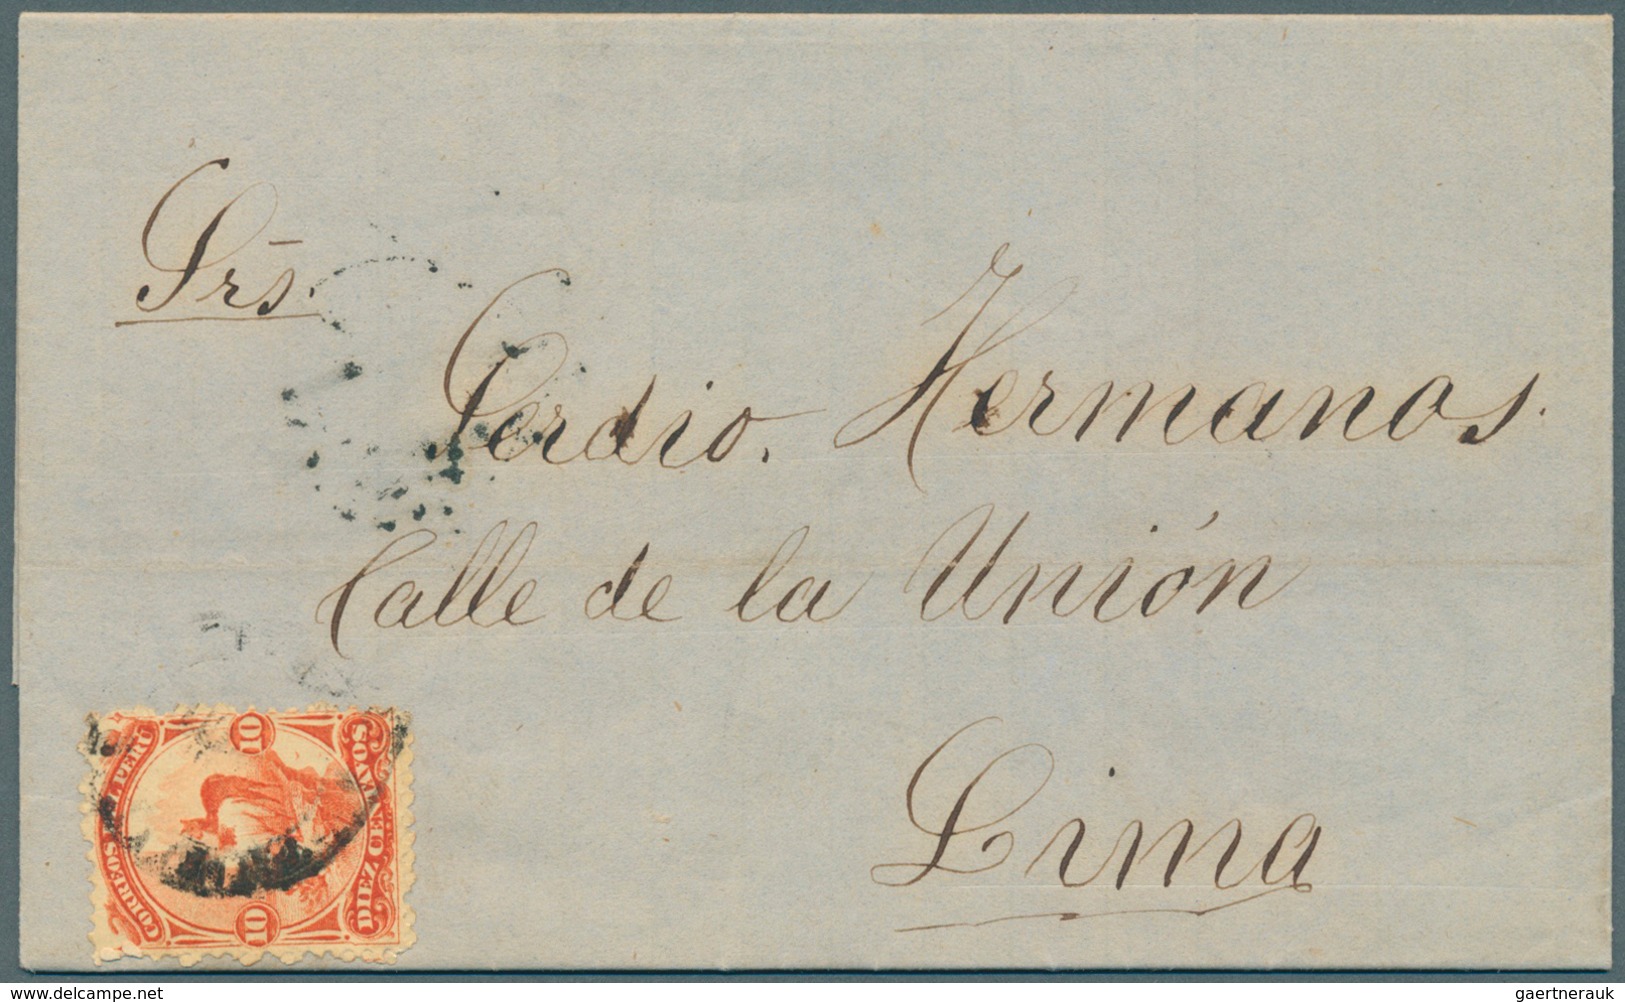 Srs.
Perdio. Hermanos.
Calle de la Unión
Lima
CORREOS DEL PERÚ
10
10
DIEZ CENTAVOS
www.delcampe.net
gaertnerauk